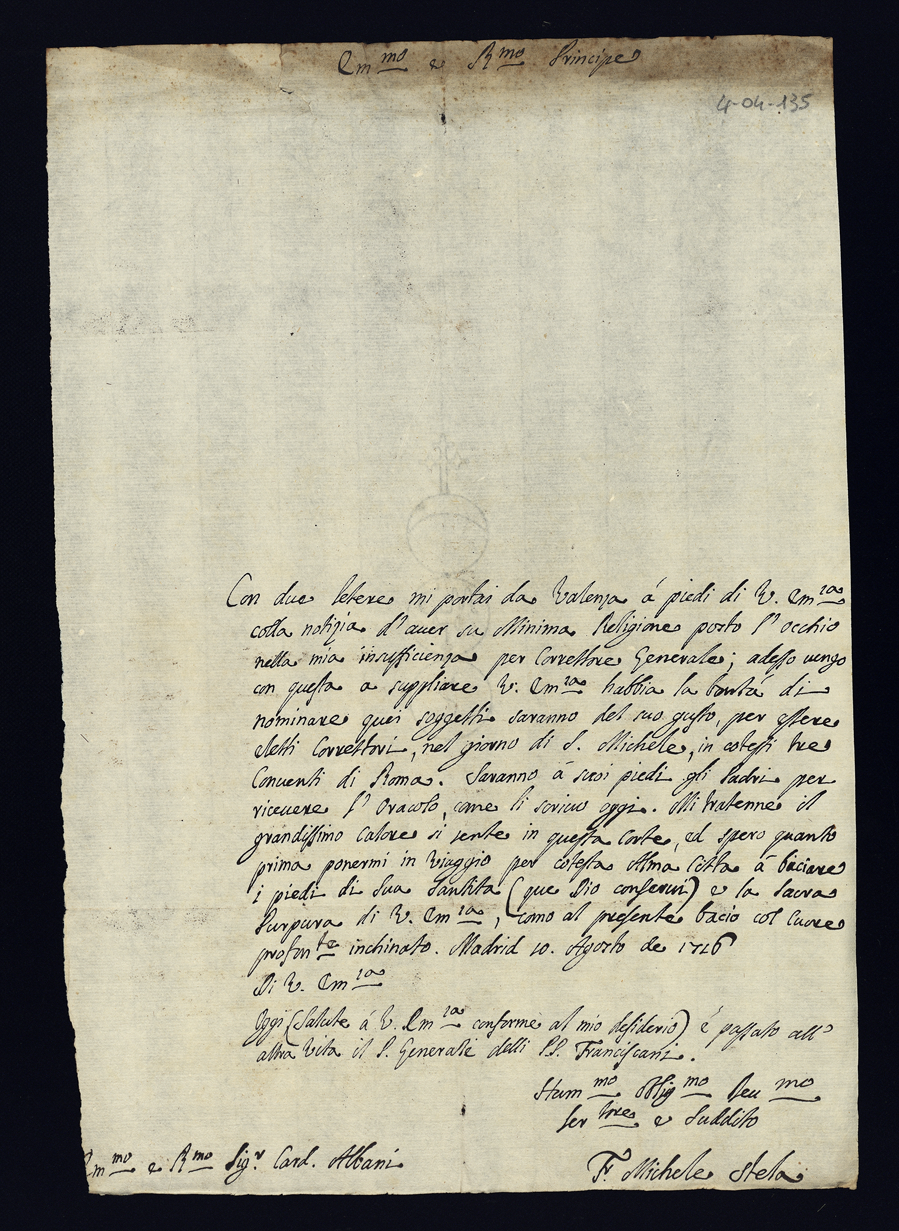 Em.mo e R.mo Principe
4-04-135
Con due letere mi portai da Valenza á piedi di V. Em.za
colla notizia d'aver su Minima Religione posto l'occhio
nella mia insufficienza per Correttore Generale; adesso vengo
con questa a suppliare V. Em.za habbia la bontá di
nominare quei soggetti saranno del suo gusto, per essere
eletti Correttori, nel giorno di S. Michele, in cotesti tre
Conventi di Roma. Saranno á suoi piedi gli Padri per
ricevere l'Oracolo, come li scrivo oggi. Mi tratenne il
grandissimo calore si sente in questa Corte, ed spero quanto
prima ponermi in viaggio per cotesta Alma Città á baciare
i piedi di Sua Santita (que Dio conservi) e la Sacra
Purpura di V. Em.za, como al presente bacio col cuore
profon.te inchinato. Madrid 10. Agosto de 1716
Di V. Em.za
Oggi (Salute á V. Em.za conforme al mio desiderio) é passato all'
altra vita il P. Generale delli PP. Franciscani.
Hum.mo Oblig.mo Deu.mo
ser.tore e Suddito
Em.mo e R.mo Sig.r Card. Albani
Fr. Michele Stela